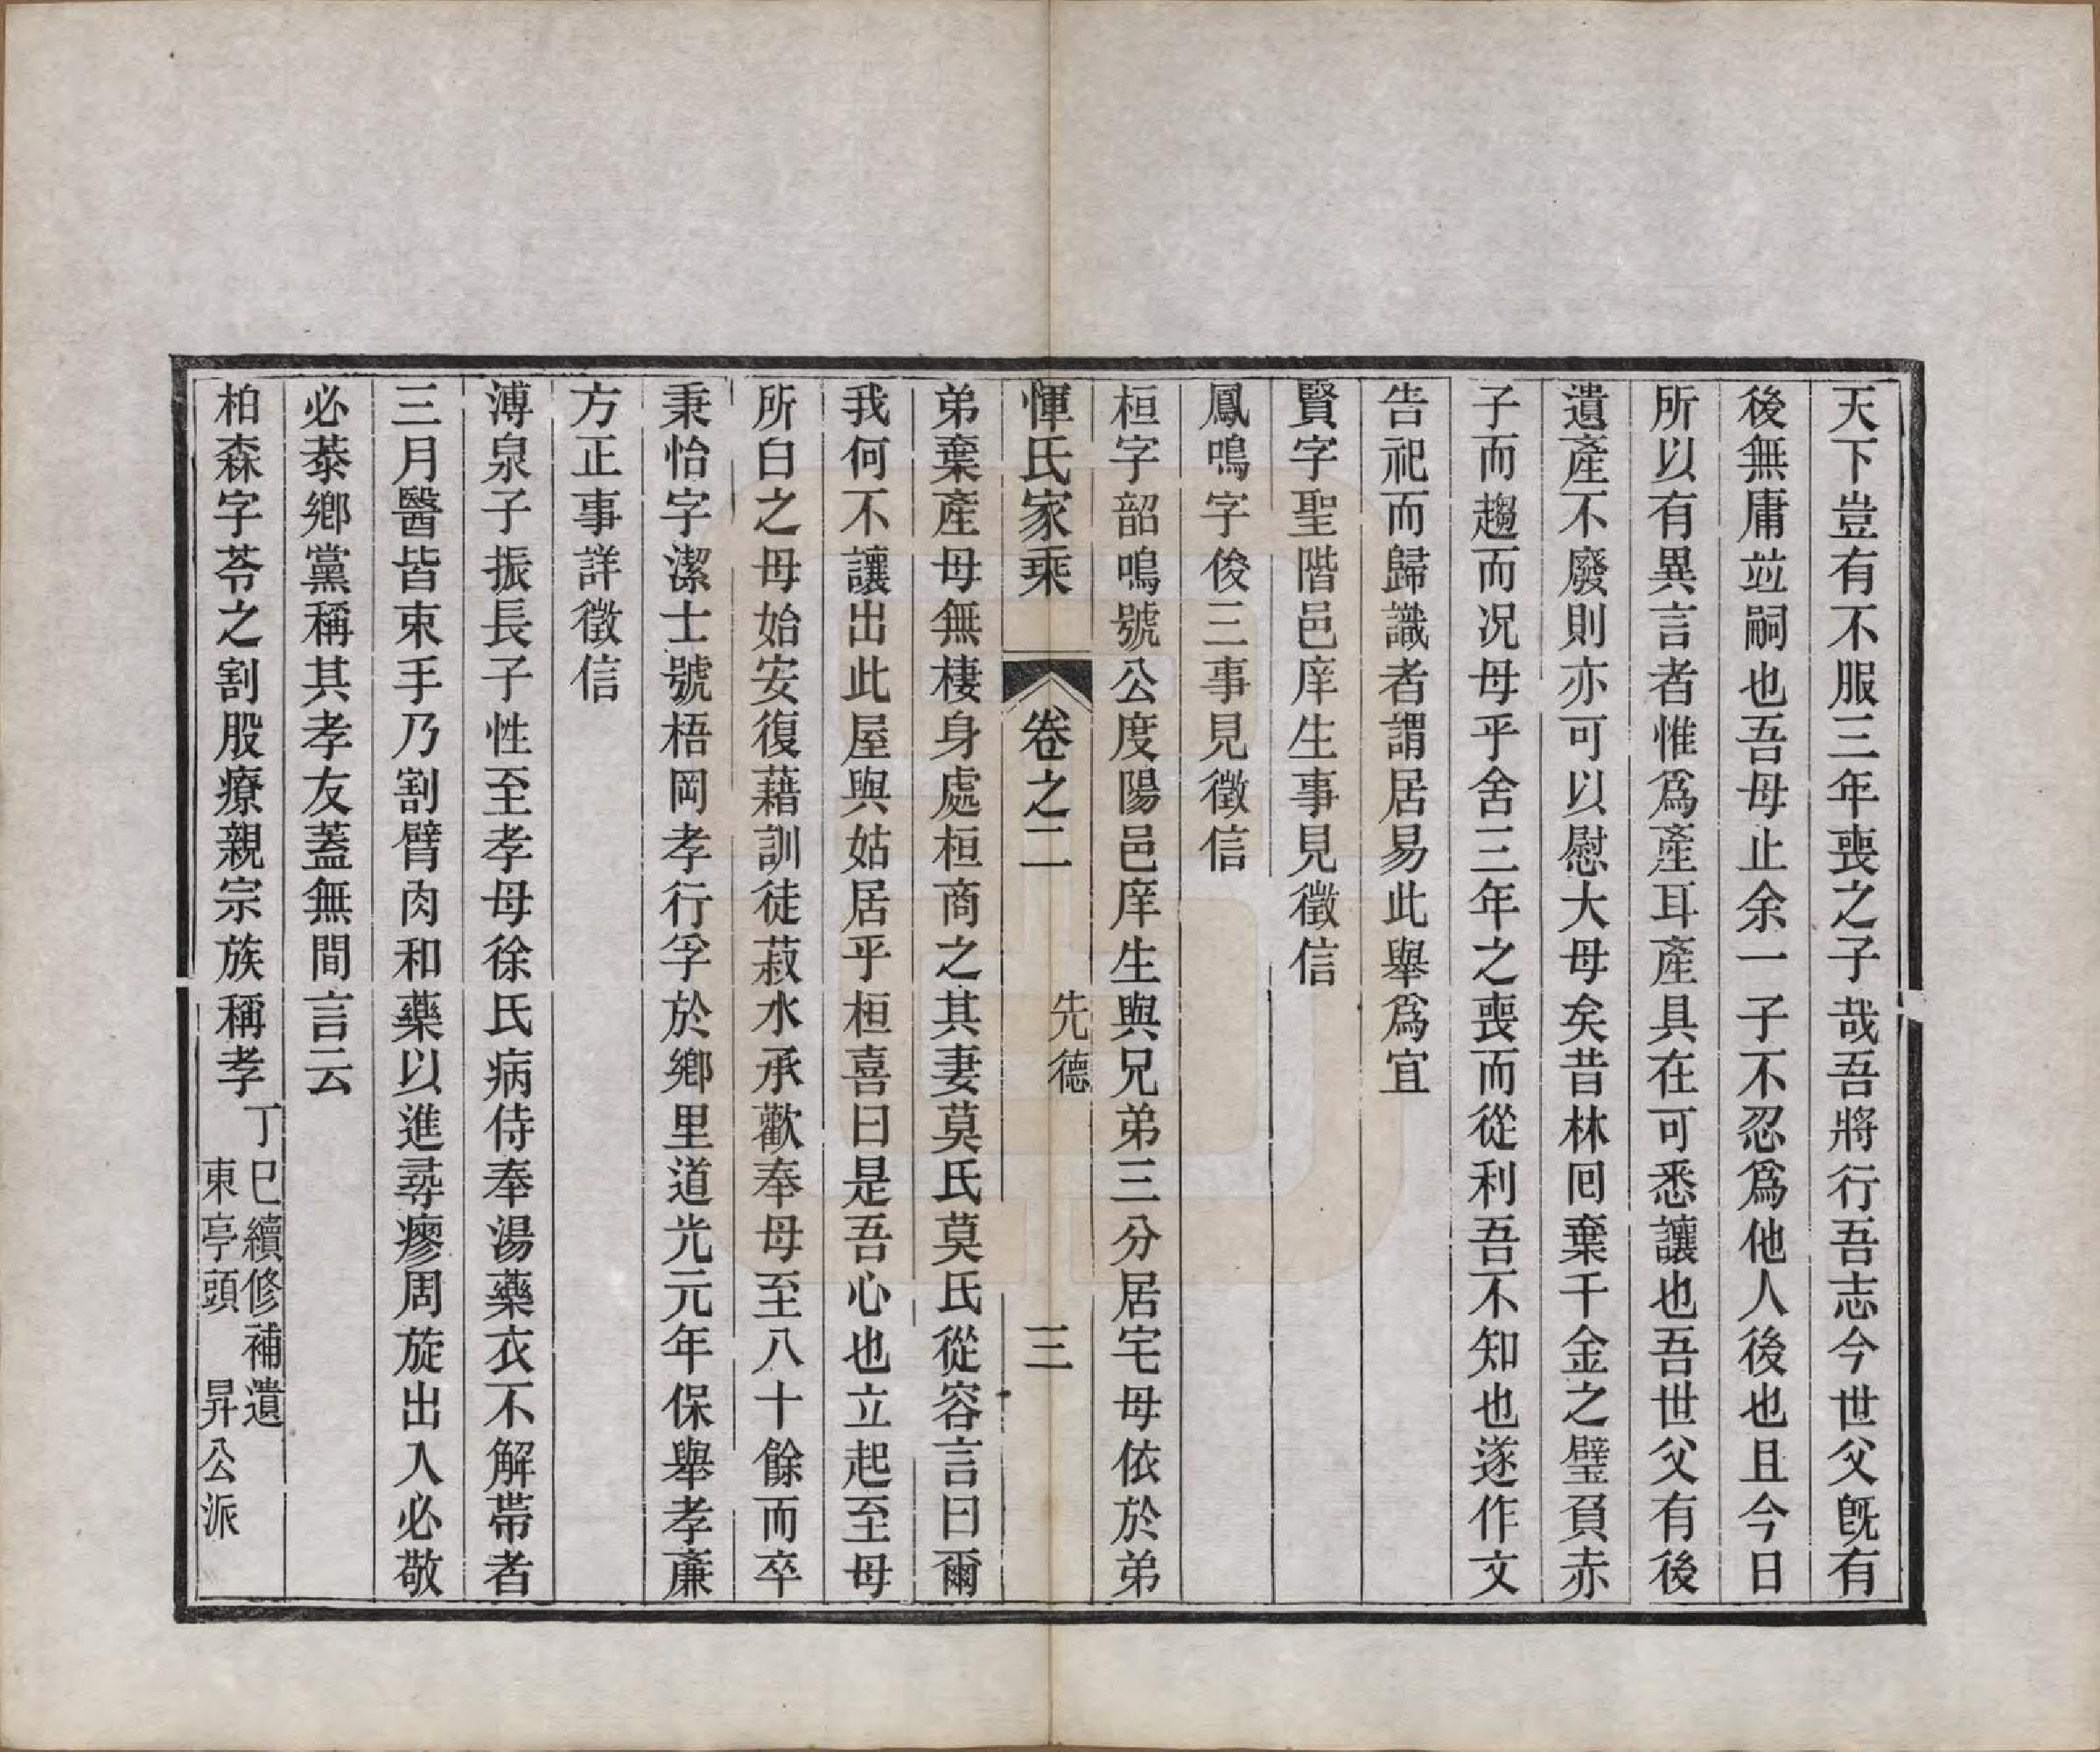 天下豈有不服三年喪之子哉吾將行吾志今世父旣有
後無庸竝嗣也吾母止余一子不忍爲他人後也且今日
所以有異言者惟爲產耳產具在可悉讓也吾世父有後
遺產不廢則亦可以慰大母矣昔林回棄千金之璧負赤
子而趨而况母乎舍三年之喪而從利吾不知也遂作文
告祀而歸識者謂居易此舉爲宜
賢字聖階邑庠生事見徵信
鳳鳴字俊三事見徵信
桓字韶鳴號公度陽邑庠生與兄弟三分居宅母依於弟
惲氏家乘 卷之二 先德 三
弟棄產母無棲身處桓商之其妻莫氏莫氏從容言曰爾
我何不讓出此屋與姑居乎桓喜曰是吾心也立起至母
所白之母始安復藉訓徒菽水承歡奉母至八十餘而卒
秉怡字潔士號梧岡孝行孚於鄉里道光元年保舉孝廉
方正事詳徵信
溥泉子振長子性至孝母徐氏病侍奉湯藥衣不解帶者
三月醫皆束手乃割臂肉和藥以進尋瘳周旋出入必敬
必恭鄉黨稱其孝友蓋無間言云
柏森字苓之割股療親宗族稱孝 丁巳續修補遺
東亭頭 昇公派